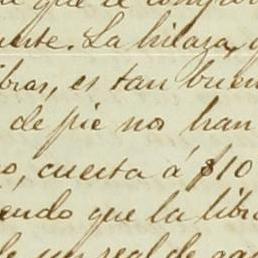 que se compon
ente. La hilaza, q
ibras, es tan buen
de pie nos han
o, cuesta á $10
endo que la libr
de un real de